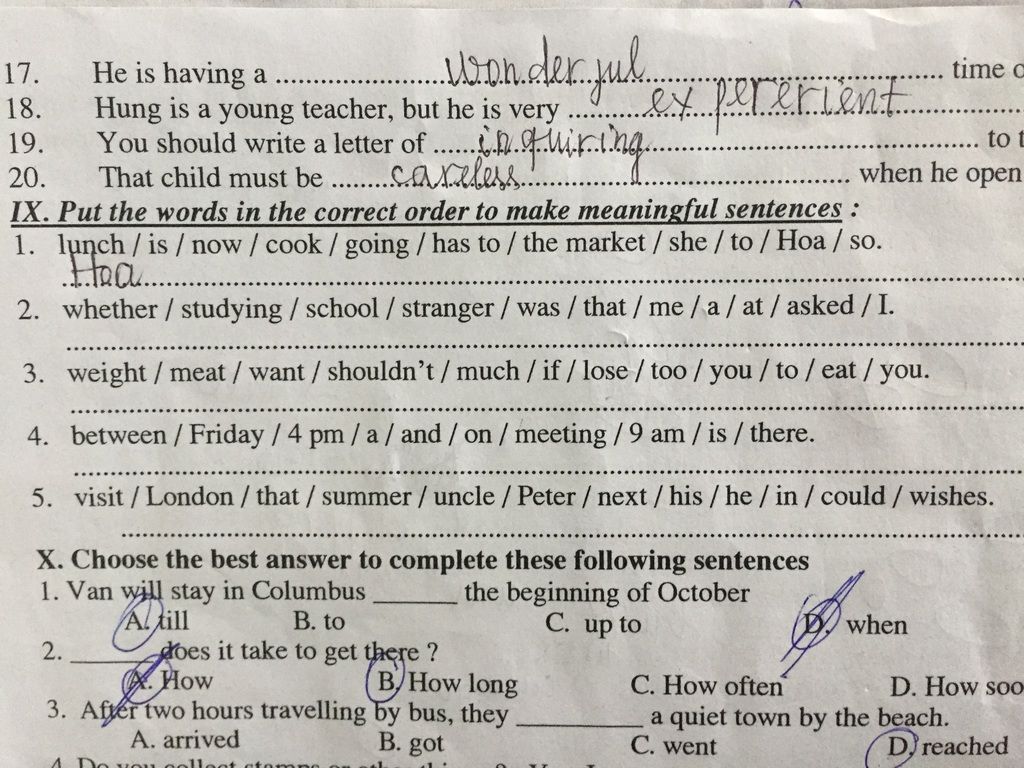 17. He is having a ..................... wonderful ..................................... time
18. Hung is a young teacher, but he is very ......... expererient .................
19. You should write a letter of ...... inquiring ......................................... to
20. That child must be ........ careless ........................................... when he open
IX. Put the words in the correct order to make meaningful sentences :
1. lunch / is / now / cook / going / has to / the market / she / to / Hoa / so.
Hoa ....................................................................................
2. whether / studying / school / stranger / was / that / me / a / at / asked / I.
....................................................................................
3. weight / meat / want / shouldn't / much / if / lose / too / you / to / eat / you.
....................................................................................
4. between / Friday / 4 pm / a / and / on / meeting / 9 am / is / there.
....................................................................................
5. visit / London / that / summer / uncle / Peter / next / his / he / in / could / wishes.
....................................................................................
X. Choose the best answer to complete these following sentences
1. Van will stay in Columbus ______ the beginning of October
A. till B. to C. up to D. when
2. _______ does it take to get there ?
A. How B. How long C. How often D. How soo
3. After two hours travelling by bus, they _________ a quiet town by the beach.
A. arrived B. got C. went D. reached